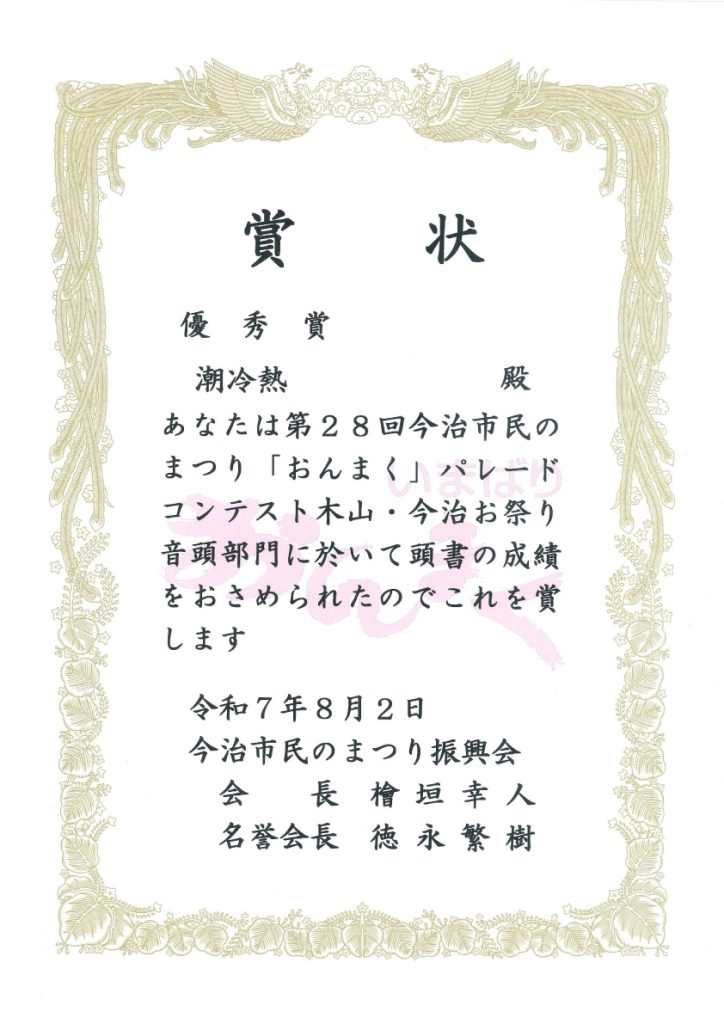 賞状
優秀賞
潮冷熱 殿
あなたは第２８回今治市民の
まつり「おんまく」パレード
コンテスト木山・今治お祭り
音頭部門に於いて頭書の成績
をおさめられたのでこれを賞
します
いまばり
おんまく
令和７年８月２日
今治市民のまつり振興会
会長 檜垣幸人
名誉会長 徳永繁樹